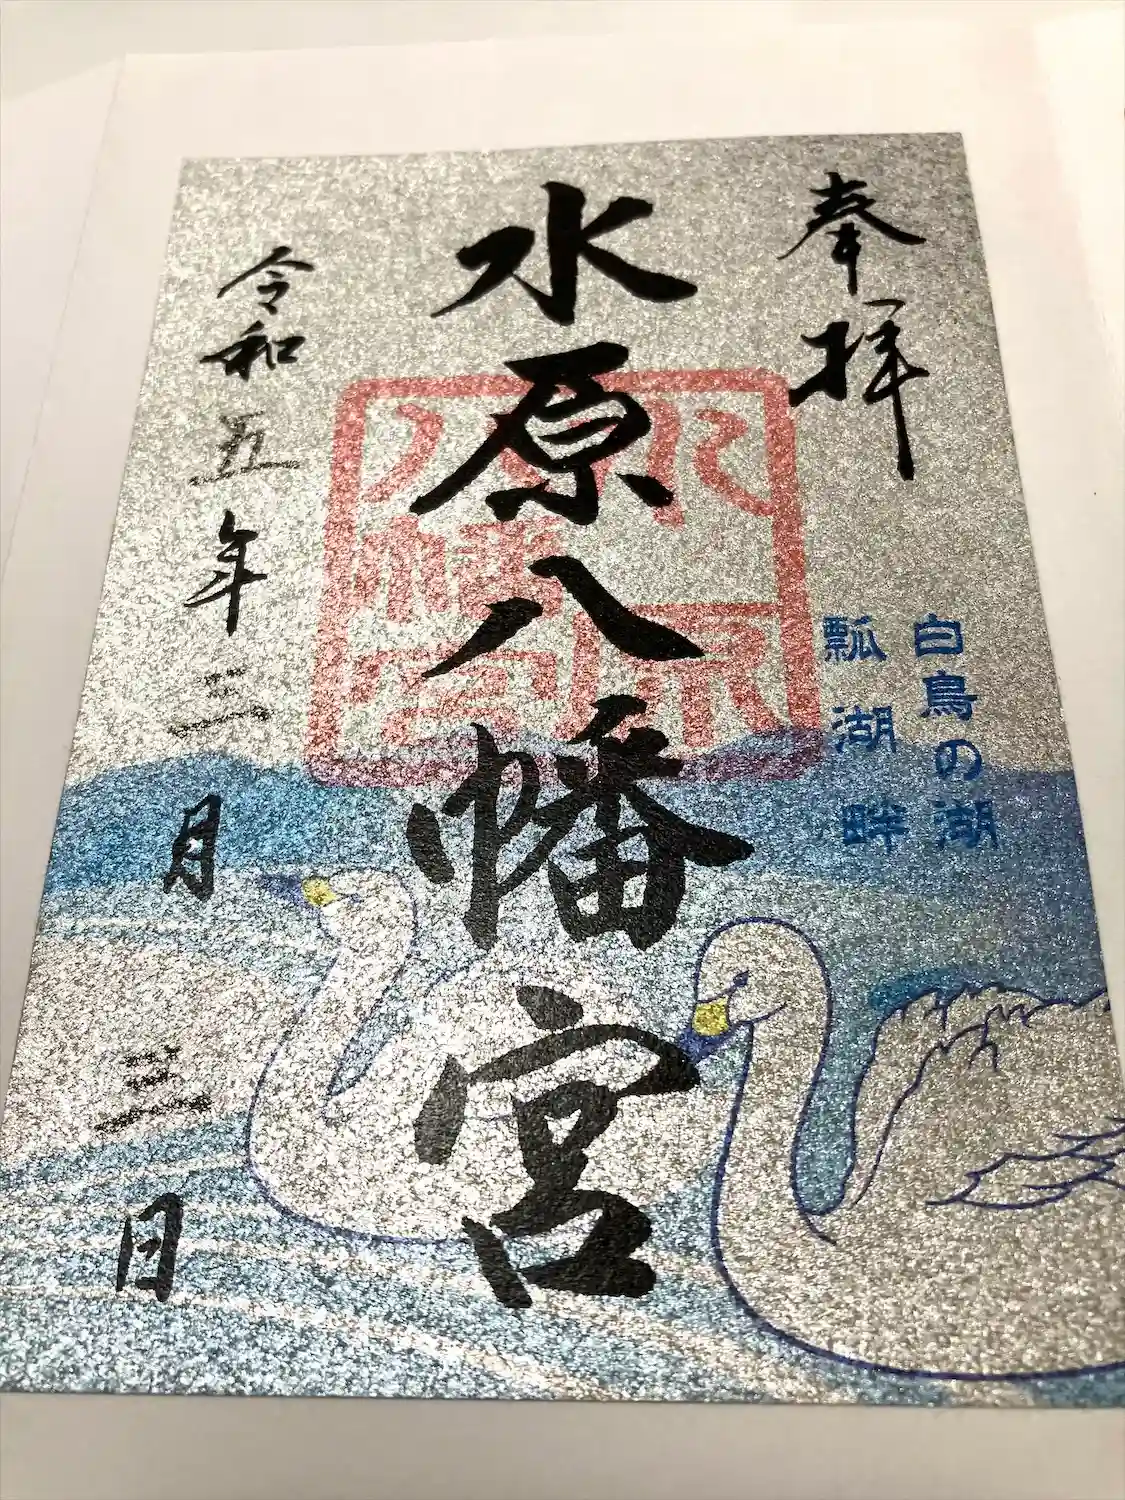 奉拝
白鳥の湖
瓢湖畔
水原八幡宮
水原
八幡宮
令和五年三月三日